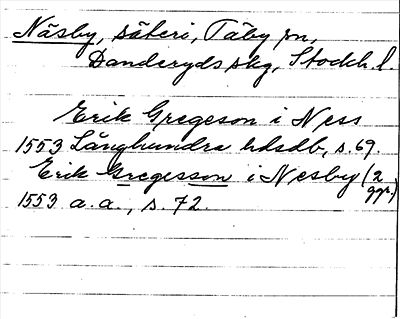 Näsby, säteri, Täby sn,
Danderyds skg, Stockh. l.
Erik Gregeson i Ness
1553 Långhundra hdsdb, s. 69.
Erik Gregesson i Nesby (2 ggr.)
1553 a. a., s. 72.